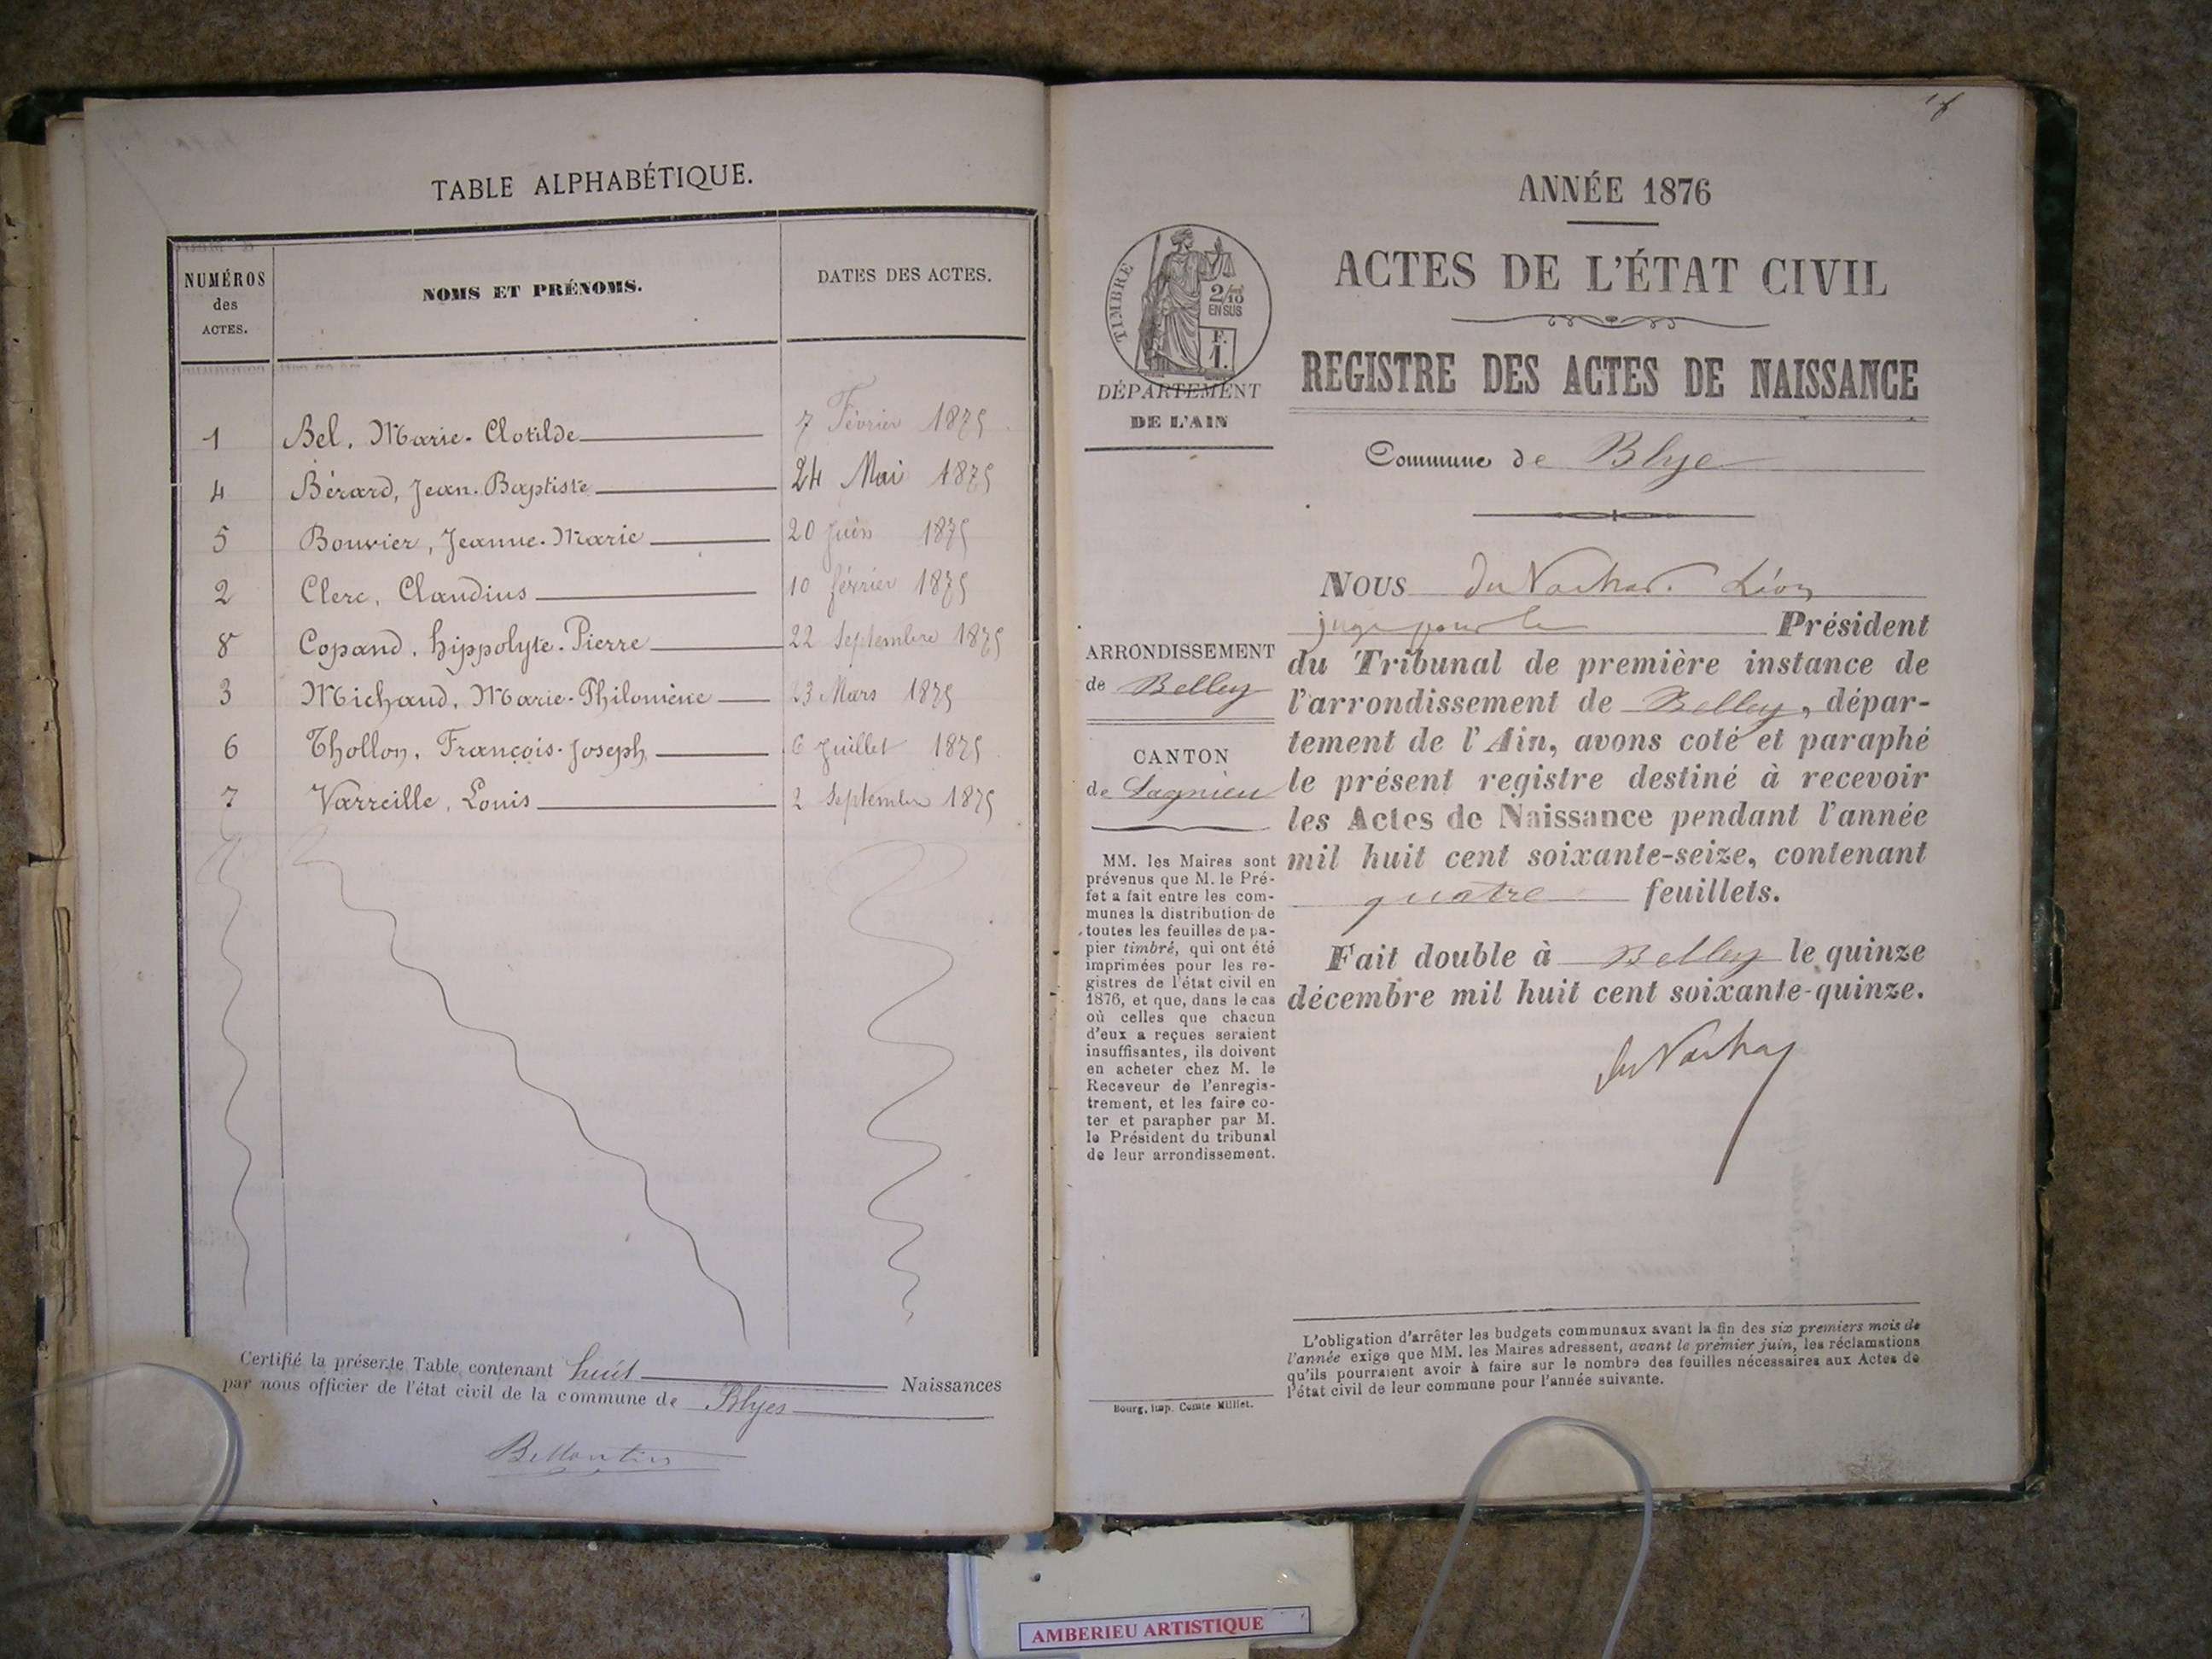 TABLE ALPHABÉTIQUE.
NUMÉROS des ACTES.
NOMS ET PRÉNOMS.
DATES DES ACTES.
1 Bel, Marie-Clotilde 7 Février 1875
4 Bérard, Jean-Baptiste 24 Mai 1875
5 Bouvier, Jeanne-Marie 20 Juin 1875
2 Clerc, Claudius 10 février 1875
8 Copand, hippolyte-Pierre 22 Septembre 1875
3 Michaud, Marie-Philomène 23 Mars 1875
6 Thollon, François-Joseph 6 Juillet 1875
7 Varreille, Louis 2 Septembre 1875
Certifié la présente Table contenant huit Naissances
par nous officier de l'état civil de la commune de Blyes
ANNÉE 1876
ACTES DE L'ÉTAT CIVIL
REGISTRE DES ACTES DE NAISSANCE
TIMBRE
2/10
EN SUS
F.
1.
DÉPARTEMENT
DE L'AIN
Commune de Blye
ARRONDISSEMENT
de Belley
CANTON
de Lagnieu
MM. les Maires sont
prévenus que M. le Pré-
fet a fait entre les com-
munes la distribution de
toutes les feuilles de pa-
pier timbré, qui ont été
imprimées pour les re-
gistres de l'état civil en
1876, et que, dans le cas
où celles que chacun
d'eux a reçues seraient
insuffisantes, ils doivent
en acheter chez M. le
Receveur de l'enregis-
trement, et les faire co-
ter et parapher par M.
le Président du tribunal
de leur arrondissement.
Bourg, imp. Comte-Milliet.
NOUS Léon
juge pour le Président
du Tribunal de première instance de
l'arrondissement de Belley, dépar-
tement de l'Ain, avons coté et paraphé
le présent registre destiné à recevoir
les Actes de Naissance pendant l'année
mil huit cent soixante-seize, contenant
quatre feuillets.
Fait double à Belley le quinze
décembre mil huit cent soixante-quinze.
L'obligation d'arrêter les budgets communaux avant la fin des six premiers mois de
l'année exige que MM. les Maires adressent, avant le premier juin, les réclamations
qu'ils pourraient avoir à faire sur le nombre des feuilles nécessaires aux Actes de
l'état civil de leur commune pour l'année suivante.
AMBERIEU ARTISTIQUE